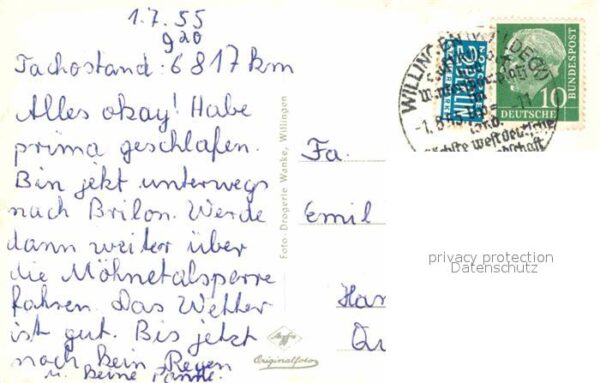 1.7.55
9 20
Tachostand: 6817 km
Alles okay! Habe
prima geschlafen.
Bin jetzt unterwegs
nach Brilon. Werde
dann weiter über
die Möhnetalsperre
fahren. Das Wetter
ist gut. Bis jetzt
noch kein Regen
u. keine Panne.
Foto-Drogerie Wanke, Willingen
Agfa
Originalfoto
WILLINGEN (WALDECK)
westdeutsche
10
DEUTSCHE
BUNDESPOST
Fa.
Emil
Han
privacy protection
Datenschutz